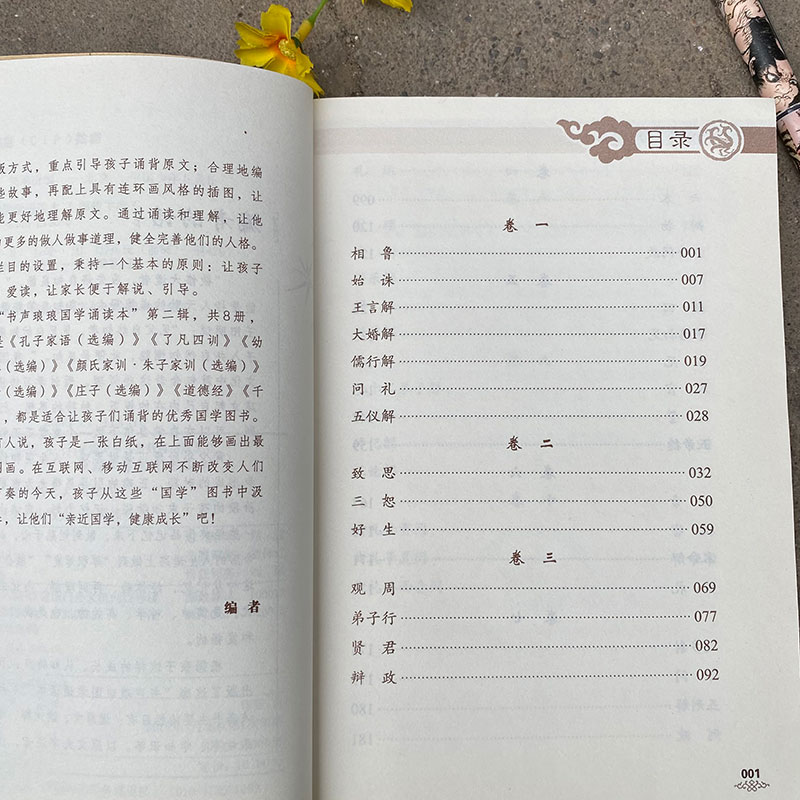 版方式，重点引导孩子诵背原文；合理地编
些故事，再配上具有连环画风格的插图，让
能更好地理解原文。通过诵读和理解，让他
更多的做人做事道理，健全完善他们的人格。
栏目的设置，秉持一个基本的原则：让孩子
爱读，让家长便于解说、引导。
“书声琅琅国学诵读本”第二辑，共8册，
是《孔子家语（选编）》《了凡四训》《幼
（选编）》《颜氏家训·朱子家训（选编）》
（选编）》《庄子（选编）》《道德经》《千
，都是适合让孩子们诵背的优秀国学图书。
有人说，孩子是一张白纸，在上面能够画出最
图画。在互联网、移动互联网不断改变人们
节奏的今天，孩子从这些“国学”图书中汲
，让他们“亲近国学，健康成长”吧！
编者
目录
卷 一
相 鲁 001
始 诛 007
王言解 011
大婚解 017
儒行解 019
问 礼 027
五仪解 028
卷 二
致 思 032
三 恕 050
好 生 059
卷 三
观 周 069
弟子行 077
贤 君 082
辩 政 092
001